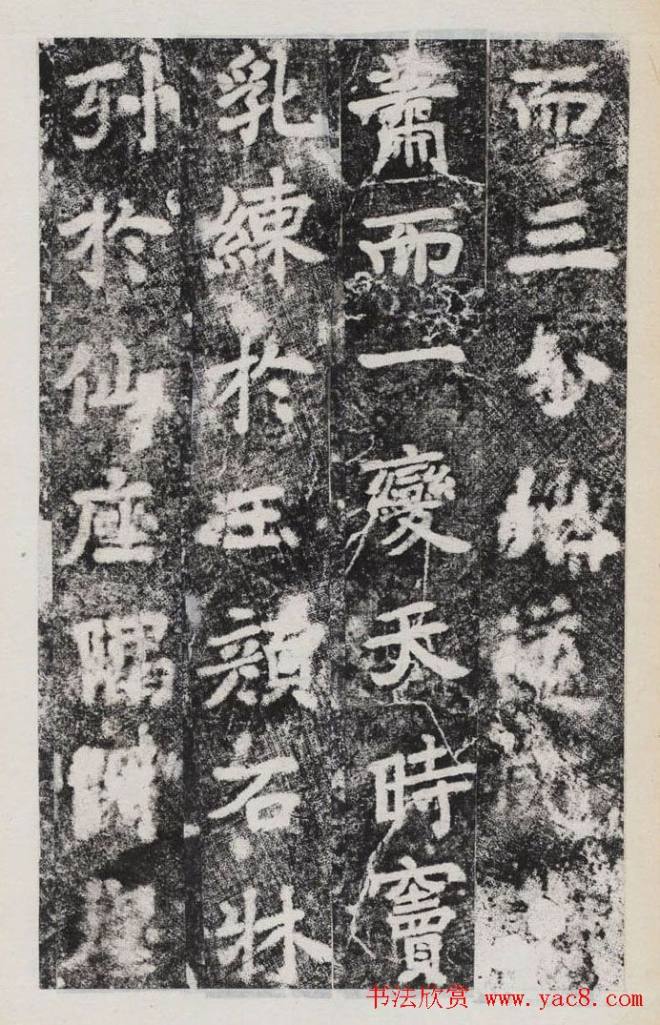 而三分
肅而一變天時竇
乳練於玉顏石牀
列於仙座隅
书法欣赏 www.yac8.com